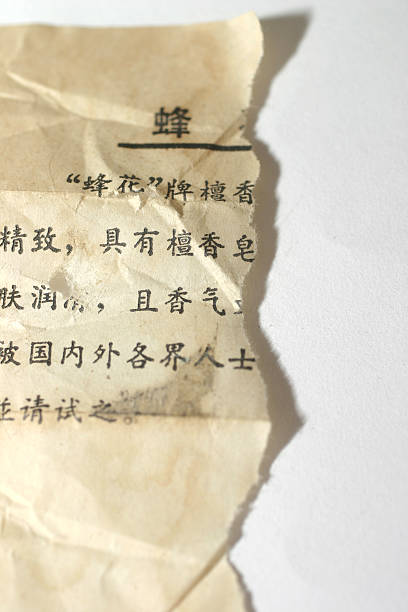 蜂
“蜂花”牌檀香
精致，具有檀香皂
肤润，且香气
被国内外各界人士
请试之。